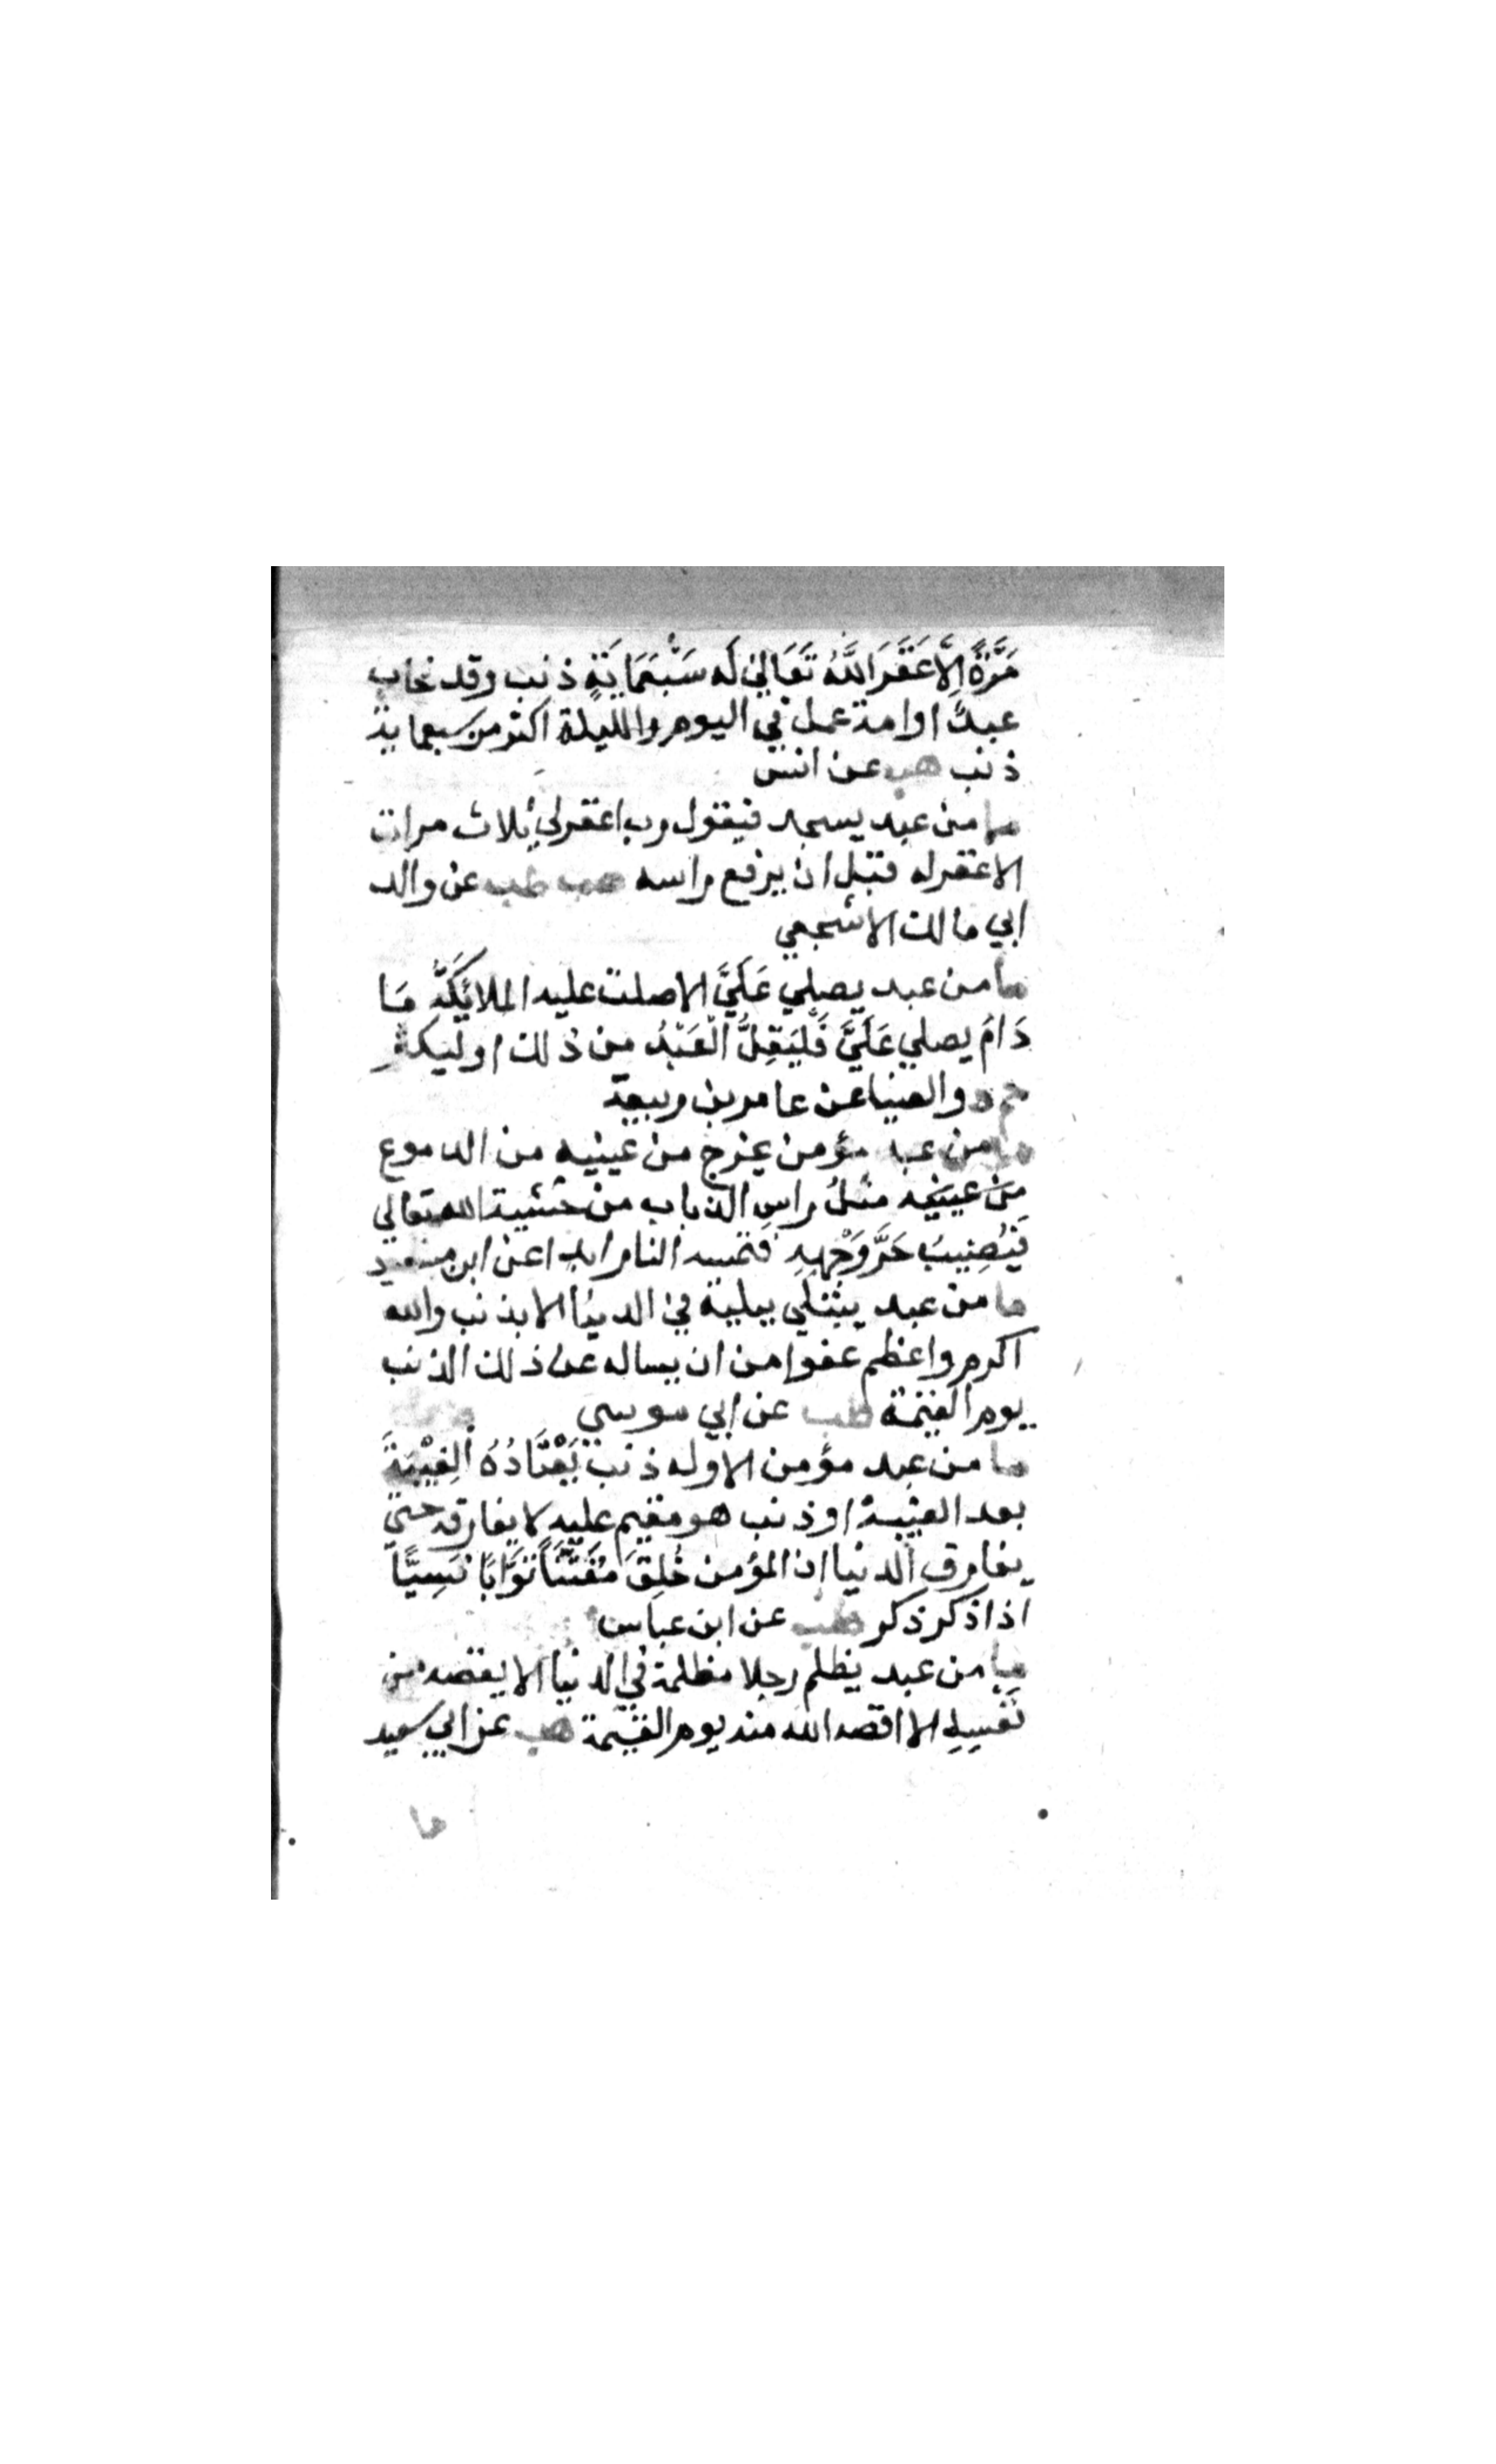 مَرَّةً اِلَّا غَفَرَ اللَّهُ تَعَالىٰ لَه سَبْعَمَايَةِ ذنب وقد خاب
عبدٌ او امة عمل في اليوم والليلة اكثر من سبعماية
ذنب هب عن انس
ما من عبد يسجد فيقول رب اغفرلي ثلاث مرات
الا غفرله قبل ان يرفع راسه طب عن والد
ابي مالك الاشجعي
ما من عبد يصلي عَلَيَّ الا صلت عليه الملائكةُ مَا
دَامَ يصلي عَلَيَّ فَلْيَقِلَّ الْعَبْدُ من ذلك او ليكثر
حم ه والضيا عن عامر بن ربيعة
ما من عبد مؤمن يخرج من عينيه من الدموع
مِن عينيه مثلُ راسِ الذباب من خشية الله تعالي
فَيُصِيبَ حَرَّ وَجْهِهِ فتمسه النار ابدا عن ابن مسعود
ما من عبد يبتلي ببلية في الدنيا الا بذنب والله
اكرم واعظم عفوا من ان يساله عن ذلك الذنب
يوم القيمة طب عن ابي موسي
ما من عبد مؤمن الا وله ذنب يَعْتَادُهُ الْفِيْنَةَ
بعد الفينة او ذنب هو مقيم عليه لا يفارقه حتي
يفارق الدنيا ان المؤمن خُلِقَ مُفَتَّنًا تَوَّابًا نَسِيًّا
اذا ذكر ذكر طب عن ابن عباس
ما من عبد يظلم رجلا مظلمة في الدنيا لا يقصه من
نَفْسِهِ الا اقصه الله منه يوم القيمة هب عن ابي سعيد
ما